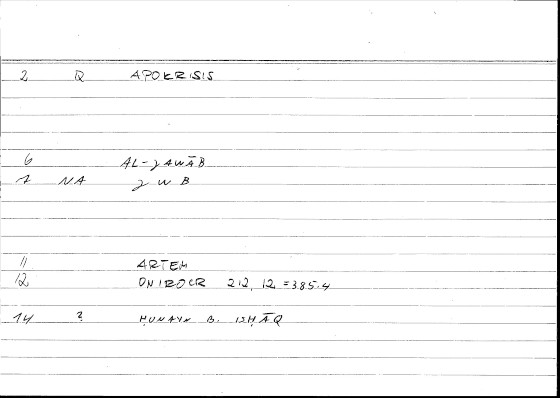 2 Q APOKRISIS
6 AL-ǧAWĀB
7 NA ǧ W B
11 ARTEM
12 ONIROCR 212, 12 = 385.4
14 2 ḤUNAYN B. ISḤĀQ